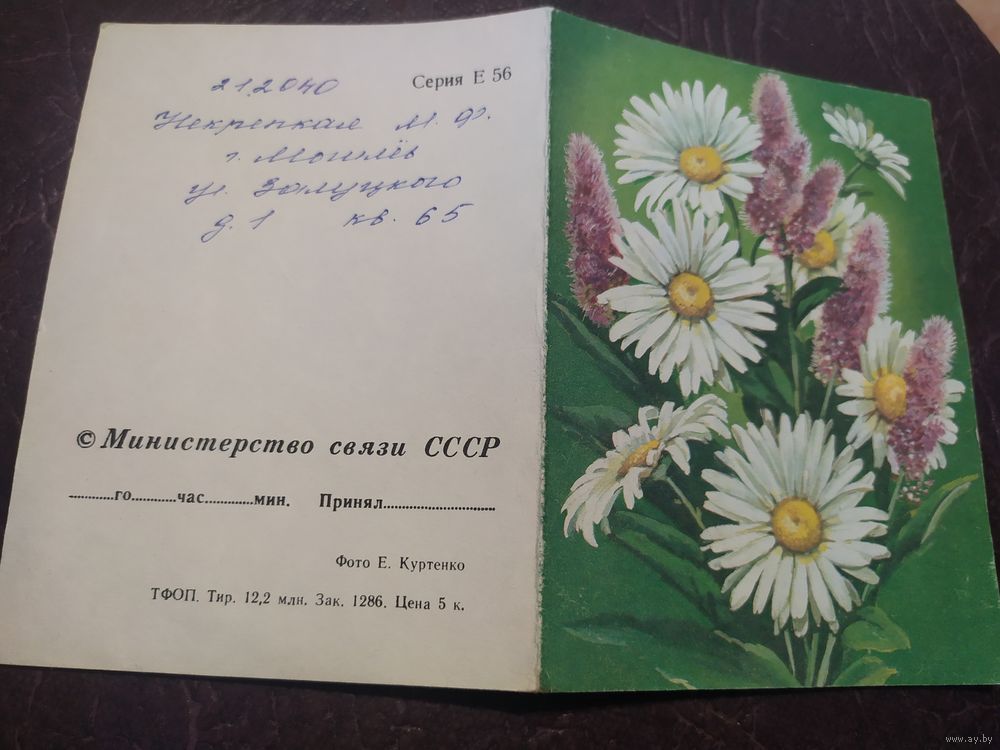 Серия Е 56
212040
Некрепкая М. Ф.
г. Могилёв
ул. Залуцкого
д. 1 кв. 65
© Министерство связи СССР
............го............час.............мин. Принял.............................
Фото Е. Куртенко
ТФОП. Тир. 12,2 млн. Зак. 1286. Цена 5 к.
www.ay.by